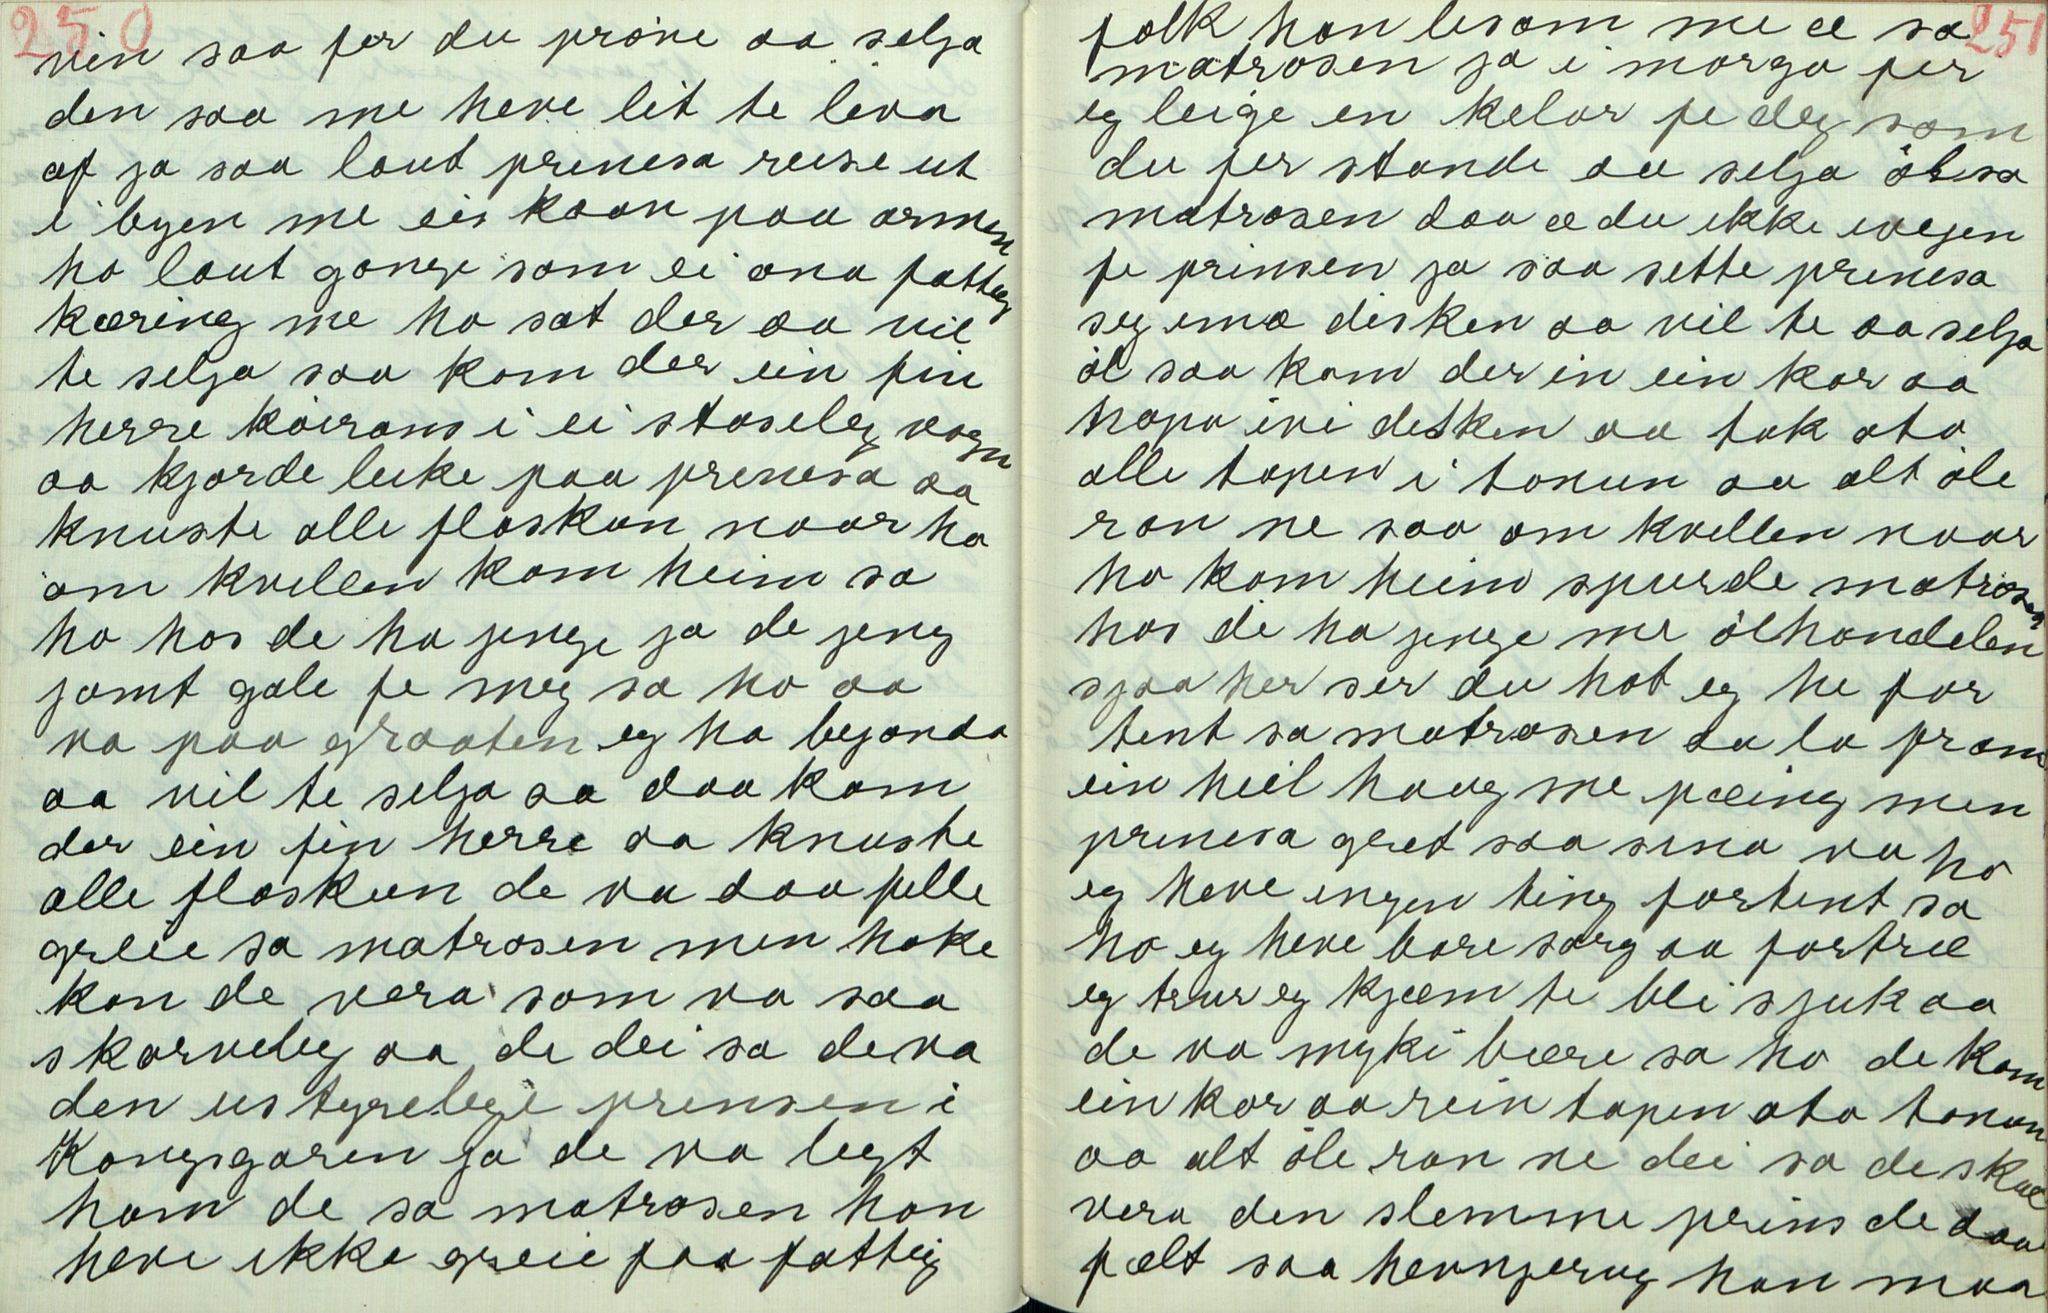 250
vin saa fer du prøve aa selja
den saa me heve lit te leva
af ja saa laut prinesa reise ut
i byen me eis kaan paa armen
ho laut gange som ei ana fatteg
kæring me ho sat der aa vil
te selja saa kom der ein fin
herre kóirans i ei staseleg vogn
aa kjørde leike paa prinesa aa
knuste alle flaskun naar ho
om kvellen kom heim sa
ho hos de ha jenge ja de jeng
jamt gale fe meg sa ho aa
va paa graaten eg ha bejonda
aa vil te selja aa daa kom
der ein fin herre aa knuste
alle flaskun de va daa felle
greie sa matrosen men hoke
kan de vera som va saa
skarveleg aa de dei sa de va
den ustyrelege prinsen i
Kongsgaren ja de va legt
ham de sa matrosen han
heve ikke greie paa fatteig
251
folk han lisom me æ sa
matrosen ja i morga fer
eg leige en kelar fe deg som
du fer stande aa selja ól sa
matrosen daa æ du ikke ivegen
fe prinsen ja saa sette prinesa
seg imæ disken aa vil te aa selja
ól saa kom der in ein kar aa
hopa ivi disken aa tok ato
alle tapen i tonun aa alt óle
ran ne saa om kvellen naar
ho kom heim spurde matrosen
hos de ha jenge me ólhandelen
sjaa her ser du hot eg he for
tent sa matrosen aa la fram
ein heil haug me pæing men
prinesa gret saa sina va ho
eg heve ingen ting fortent sa
ho eg heve bare sorg aa fortræ
eg trur eg kjæm te bli sjuk aa
de va myki bære sa ho de kom
ein kar aa rein tapen ato tonun
aa alt óle ran ne dei sa de skul
vera den slemme prins de daa
fælt saa hevnjerug han maa